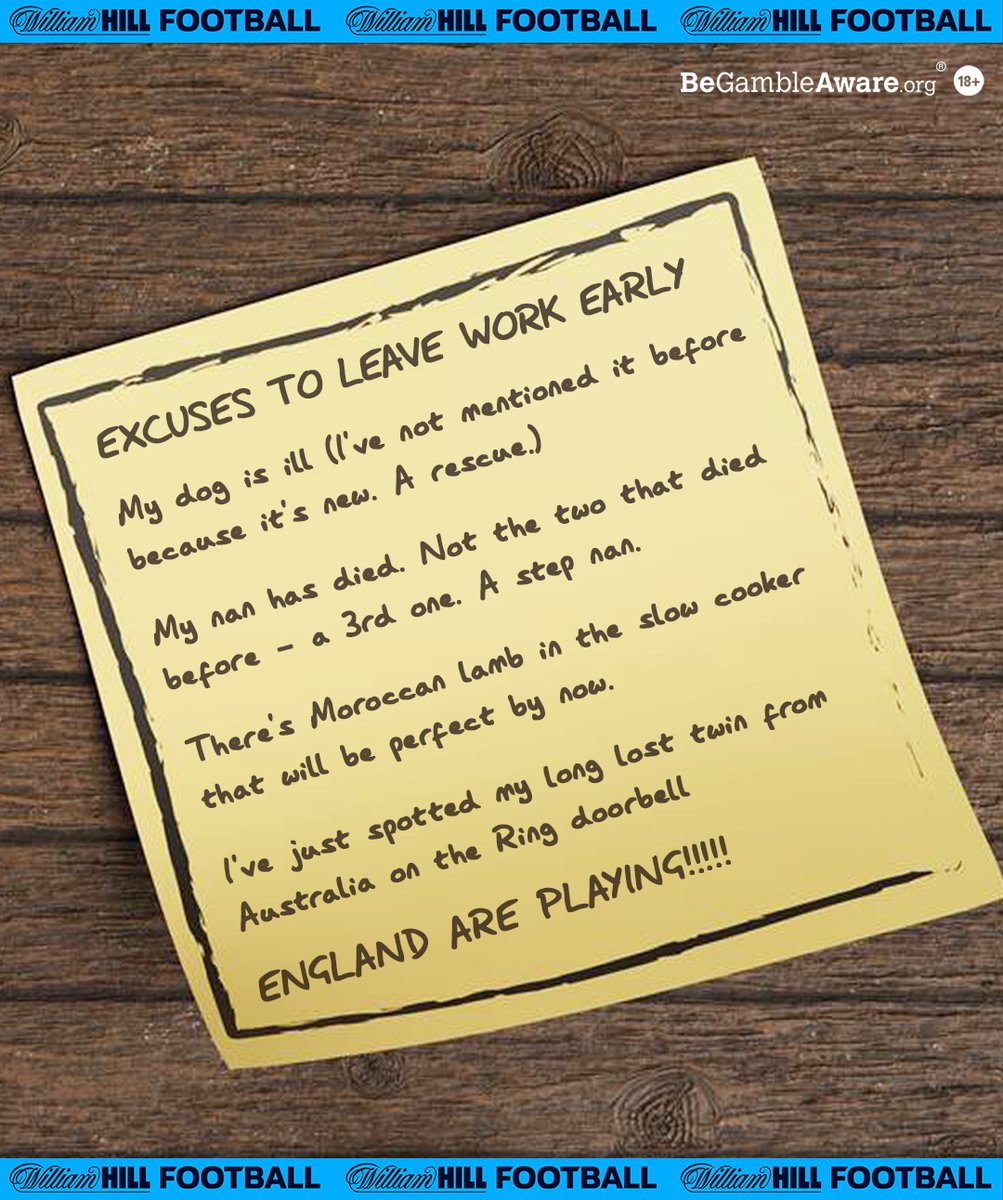 William HILL FOOTBALL William HILL FOOTBALL William HILL FOOTBALL
BeGambleAware.org® 18+
EXCUSES TO LEAVE WORK EARLY
My dog is ill (I've not mentioned it before
because it's new. A rescue.)
My nan has died. Not the two that died
before - a 3rd one. A step nan.
There's Moroccan lamb in the slow cooker
that will be perfect by now.
I've just spotted my long lost twin from
Australia on the Ring doorbell
ENGLAND ARE PLAYING!!!!!
William HILL FOOTBALL William HILL FOOTBALL William HILL FOOTBALL